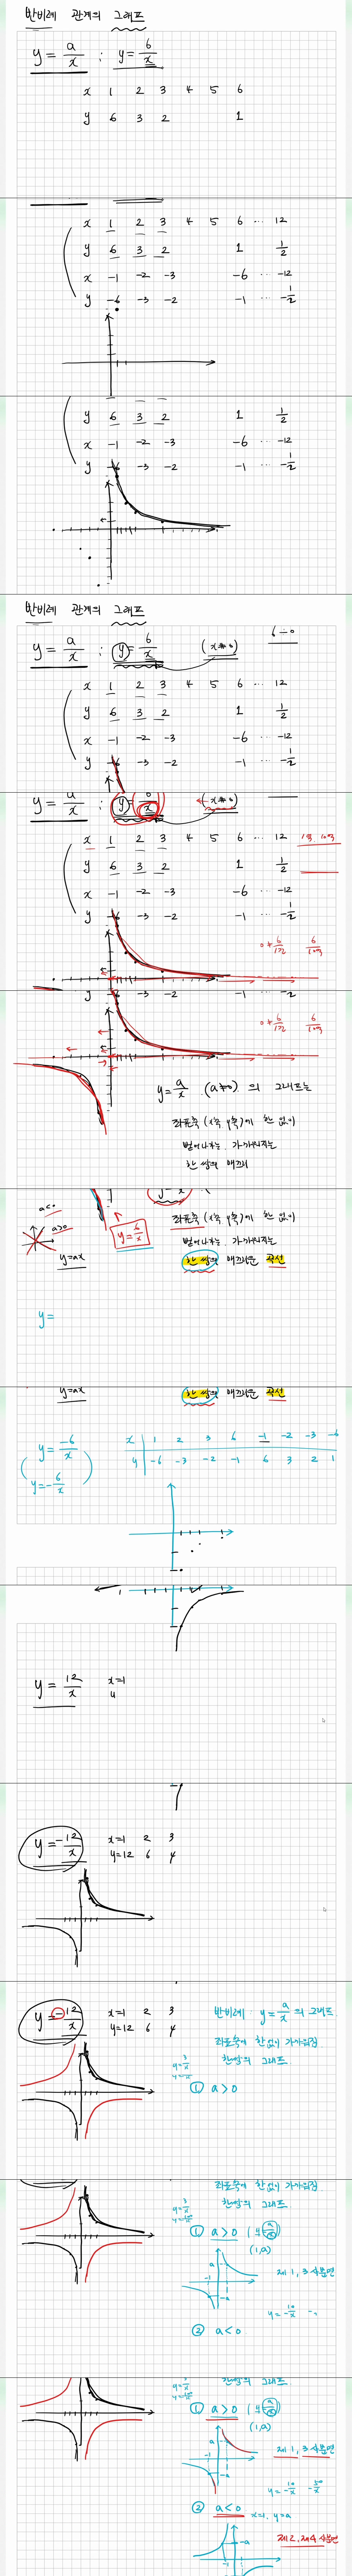 반비례 관계의 그래프
y = a/x : y = 6/x
x 1 2 3 4 5 6
y 6 3 2 1
x 1 2 3 4 5 6 ... 12
y 6 3 2 1 1/2
x -1 -2 -3 -6 ... -12
y -6 -3 -2 -1 ... -1/2
y 6 3 2 1 1/2
x -1 -2 -3 -6 ... -12
y -6 -3 -2 -1 ... -1/2
반비례 관계의 그래프
6÷0
y = a/x : y = 6/x (x≠0)
x 1 2 3 4 5 6 ... 12
y 6 3 2 1 1/2
x -1 -2 -3 -6 ... -12
y -6 -3 -2 -1 ... -1/2
(x≠0)
x 1 2 3 4 5 6 ... 12 1억 10억
y 6 3 2 1 1/2
x -1 -2 -3 -6 ... -12
y -6 -3 -2 -1 ... -1/2
0≠ 6/1억 6/10억
y -3 -2 -1 -1/2
0≠ 6/1억 6/10억
y = a/x (a≠0) 의 그래프는
좌표축 (x축 y축)에 한 없이
뻗어나가는, 가까워지는
한 쌍의 매끄러
a<0
a>0
y = 6/x
좌표축 (x축 y축)에 한 없이
뻗어나가는, 가까워지는
y=ax
한 쌍의 매끄러운 곡선
y=
y=ax
한 쌍의 매끄러운 곡선
y = -6/x
(y = -6/x)
x 1 2 3 6 -1 -2 -3 -6
y -6 -3 -2 -1 6 3 2 1
y = 12/x x=1
y
y = -12/x x=1 2 3
y=12 6 4
y = -12/x x=1 2 3
y=12 6 4
반비례 y = a/x 의 그래프
좌표축에 한없이 가까워짐
한쌍의 그래프
① a>0
좌표축에 한없이 가까워짐
한쌍의 그래프
① a>0
(1,a)
a
-1
1
-a
제 1, 3 사분면
y = -10/x
② a<0
한쌍의 그래프
① a>0
(1,a)
a
-1
1
-a
제 1, 3 사분면
y = -10/x
② a<0 x=1, y=a
-a
제2, 제4 사분면